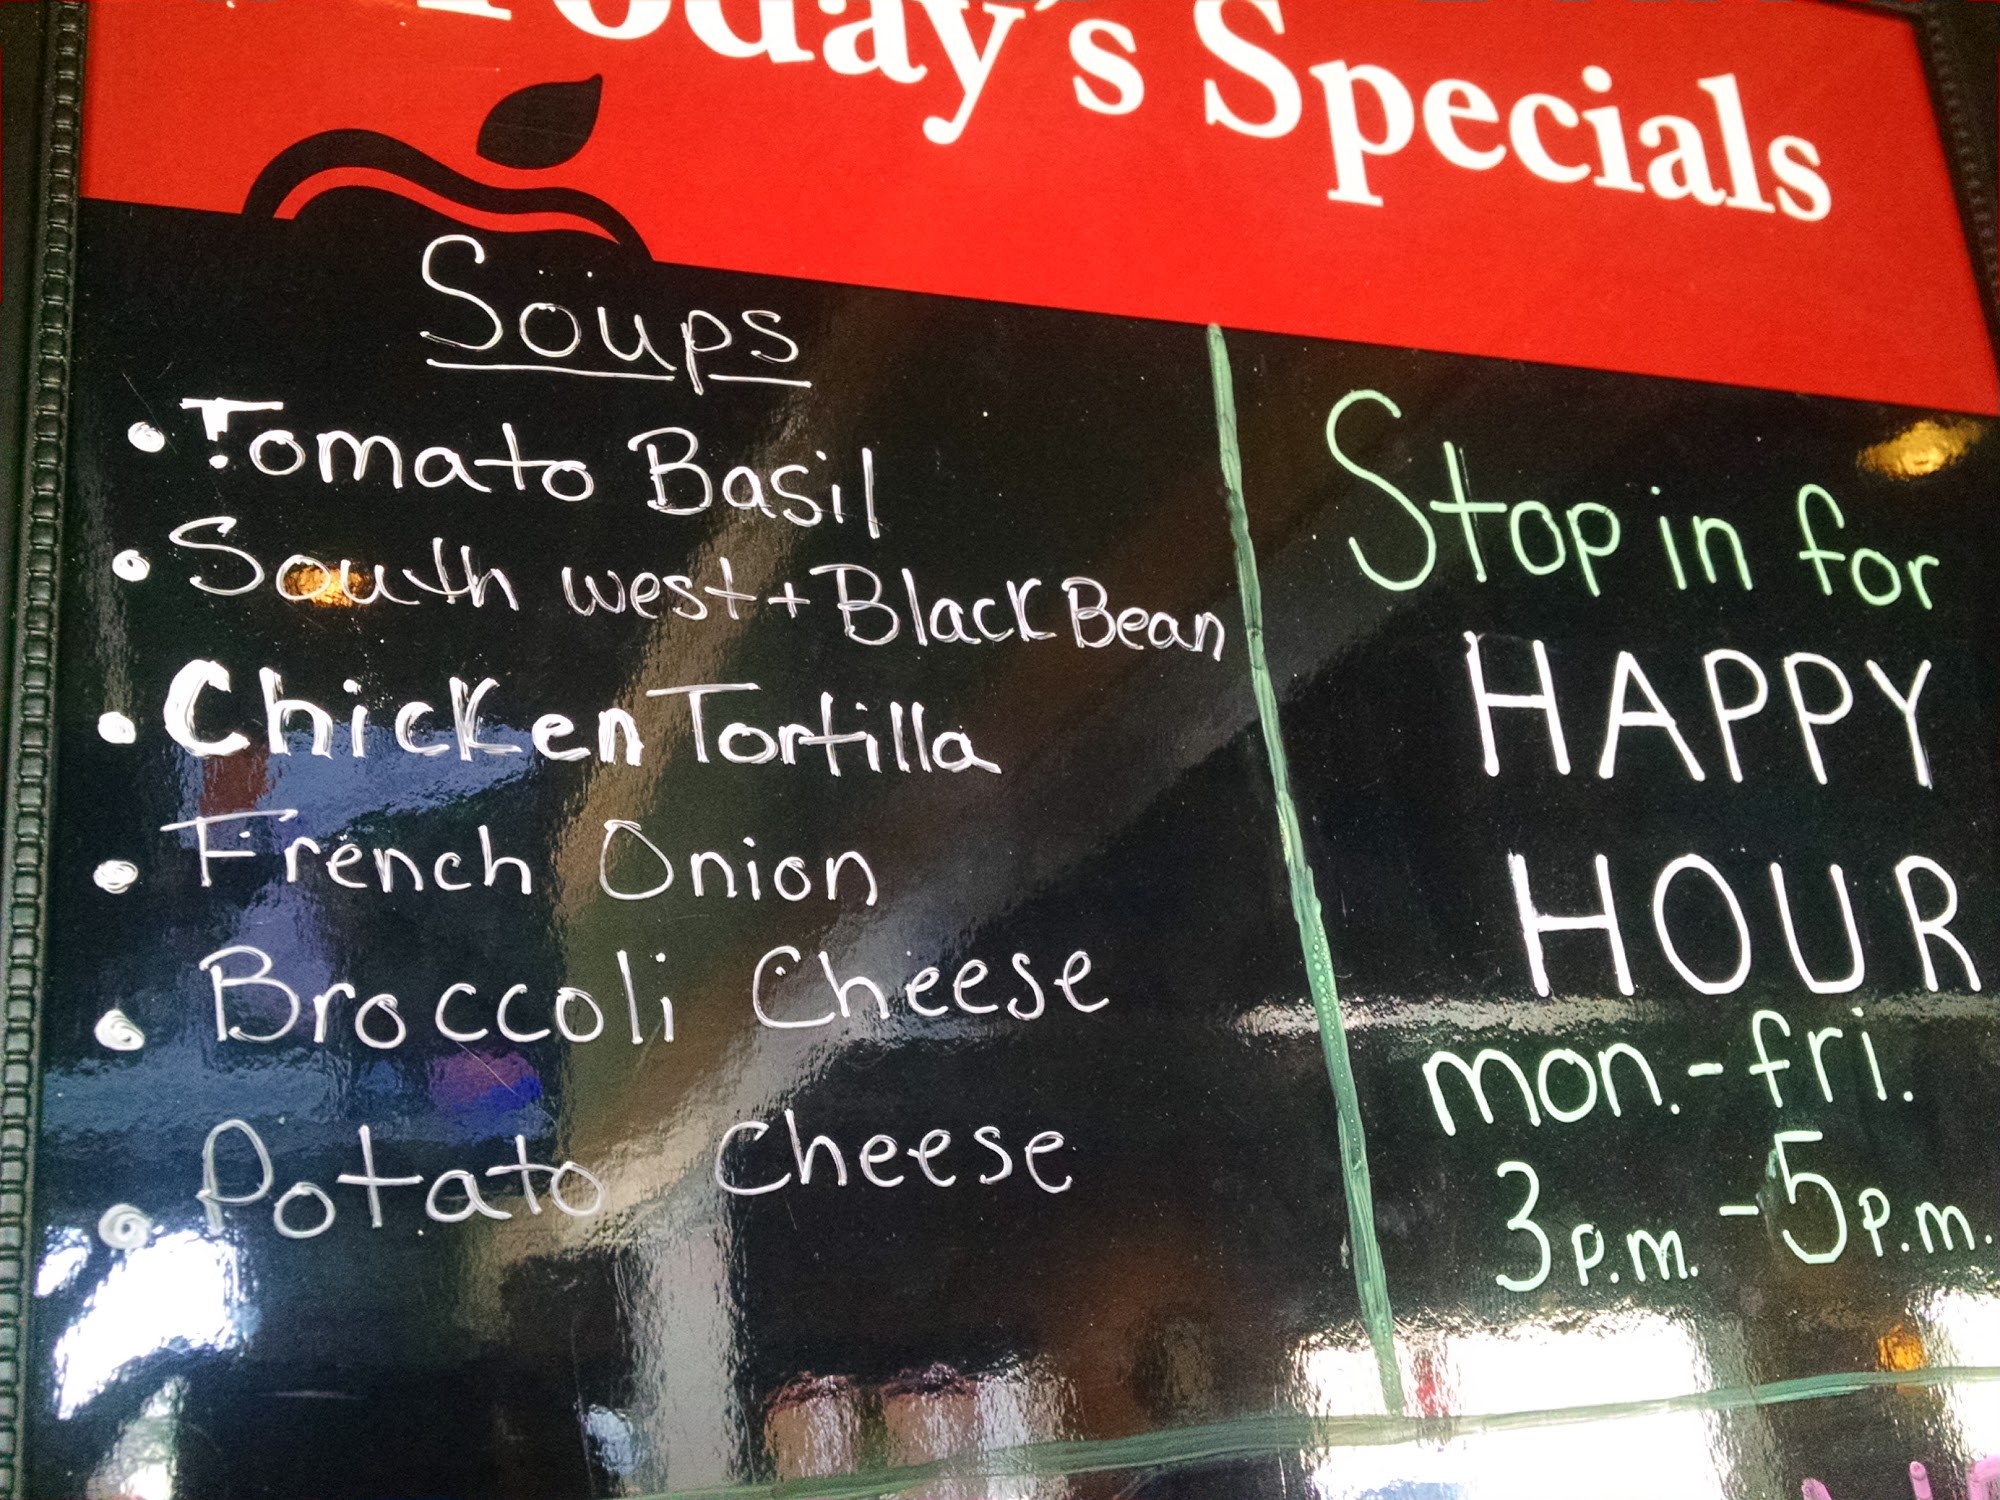 Today's Specials
Soups
• Tomato Basil
• South west + Black Bean
• Chicken Tortilla
• French Onion
• Broccoli Cheese
• Potato Cheese
Stop in for
HAPPY
HOUR
mon.-fri.
3p.m. - 5p.m.